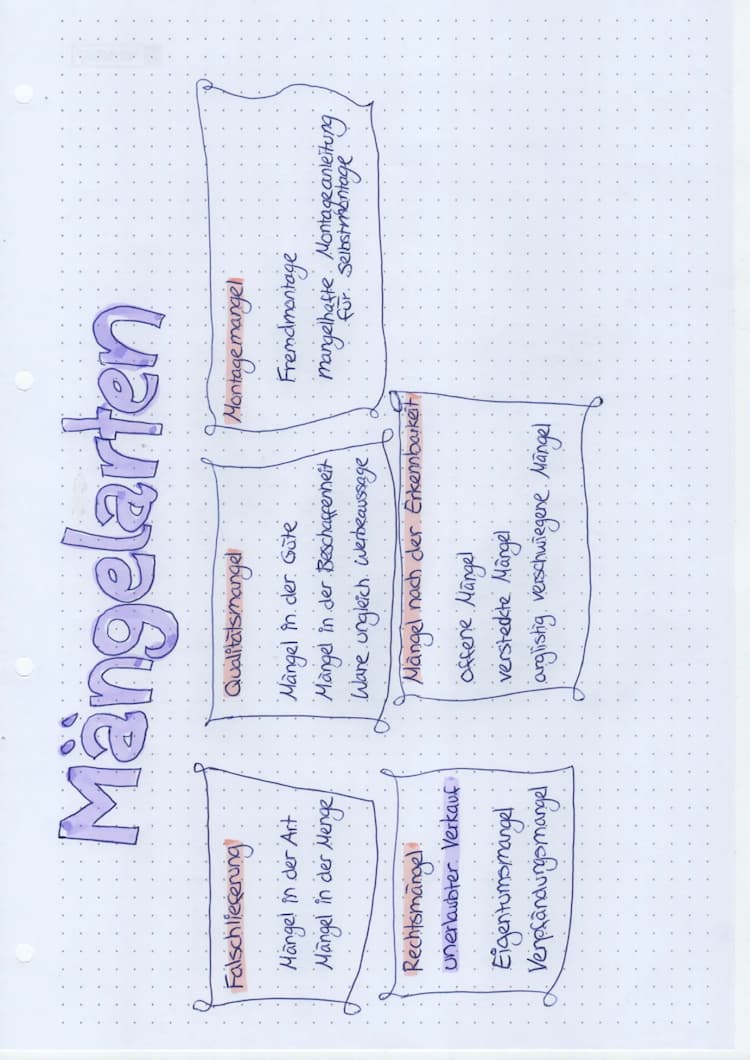 Mängelarten
Falschlieferung
Mängel in der Art
Mängel in der Menge
Qualitätsmangel
Mängel in der Güte
Mängel in der Beschaffenheit
Ware ungleich Werbeaussage
Montagemangel
Fremdmontage
mangelhafte Montageanleitung
für Selbstmontage
Rechtsmängel
unerlaubter Verkauf
Eigentumsmangel
Verpfändungsmangel
Mängel nach der Erkennbarkeit
Offene Mängel
versteckte Mängel
arglistig verschwiegene Mängel